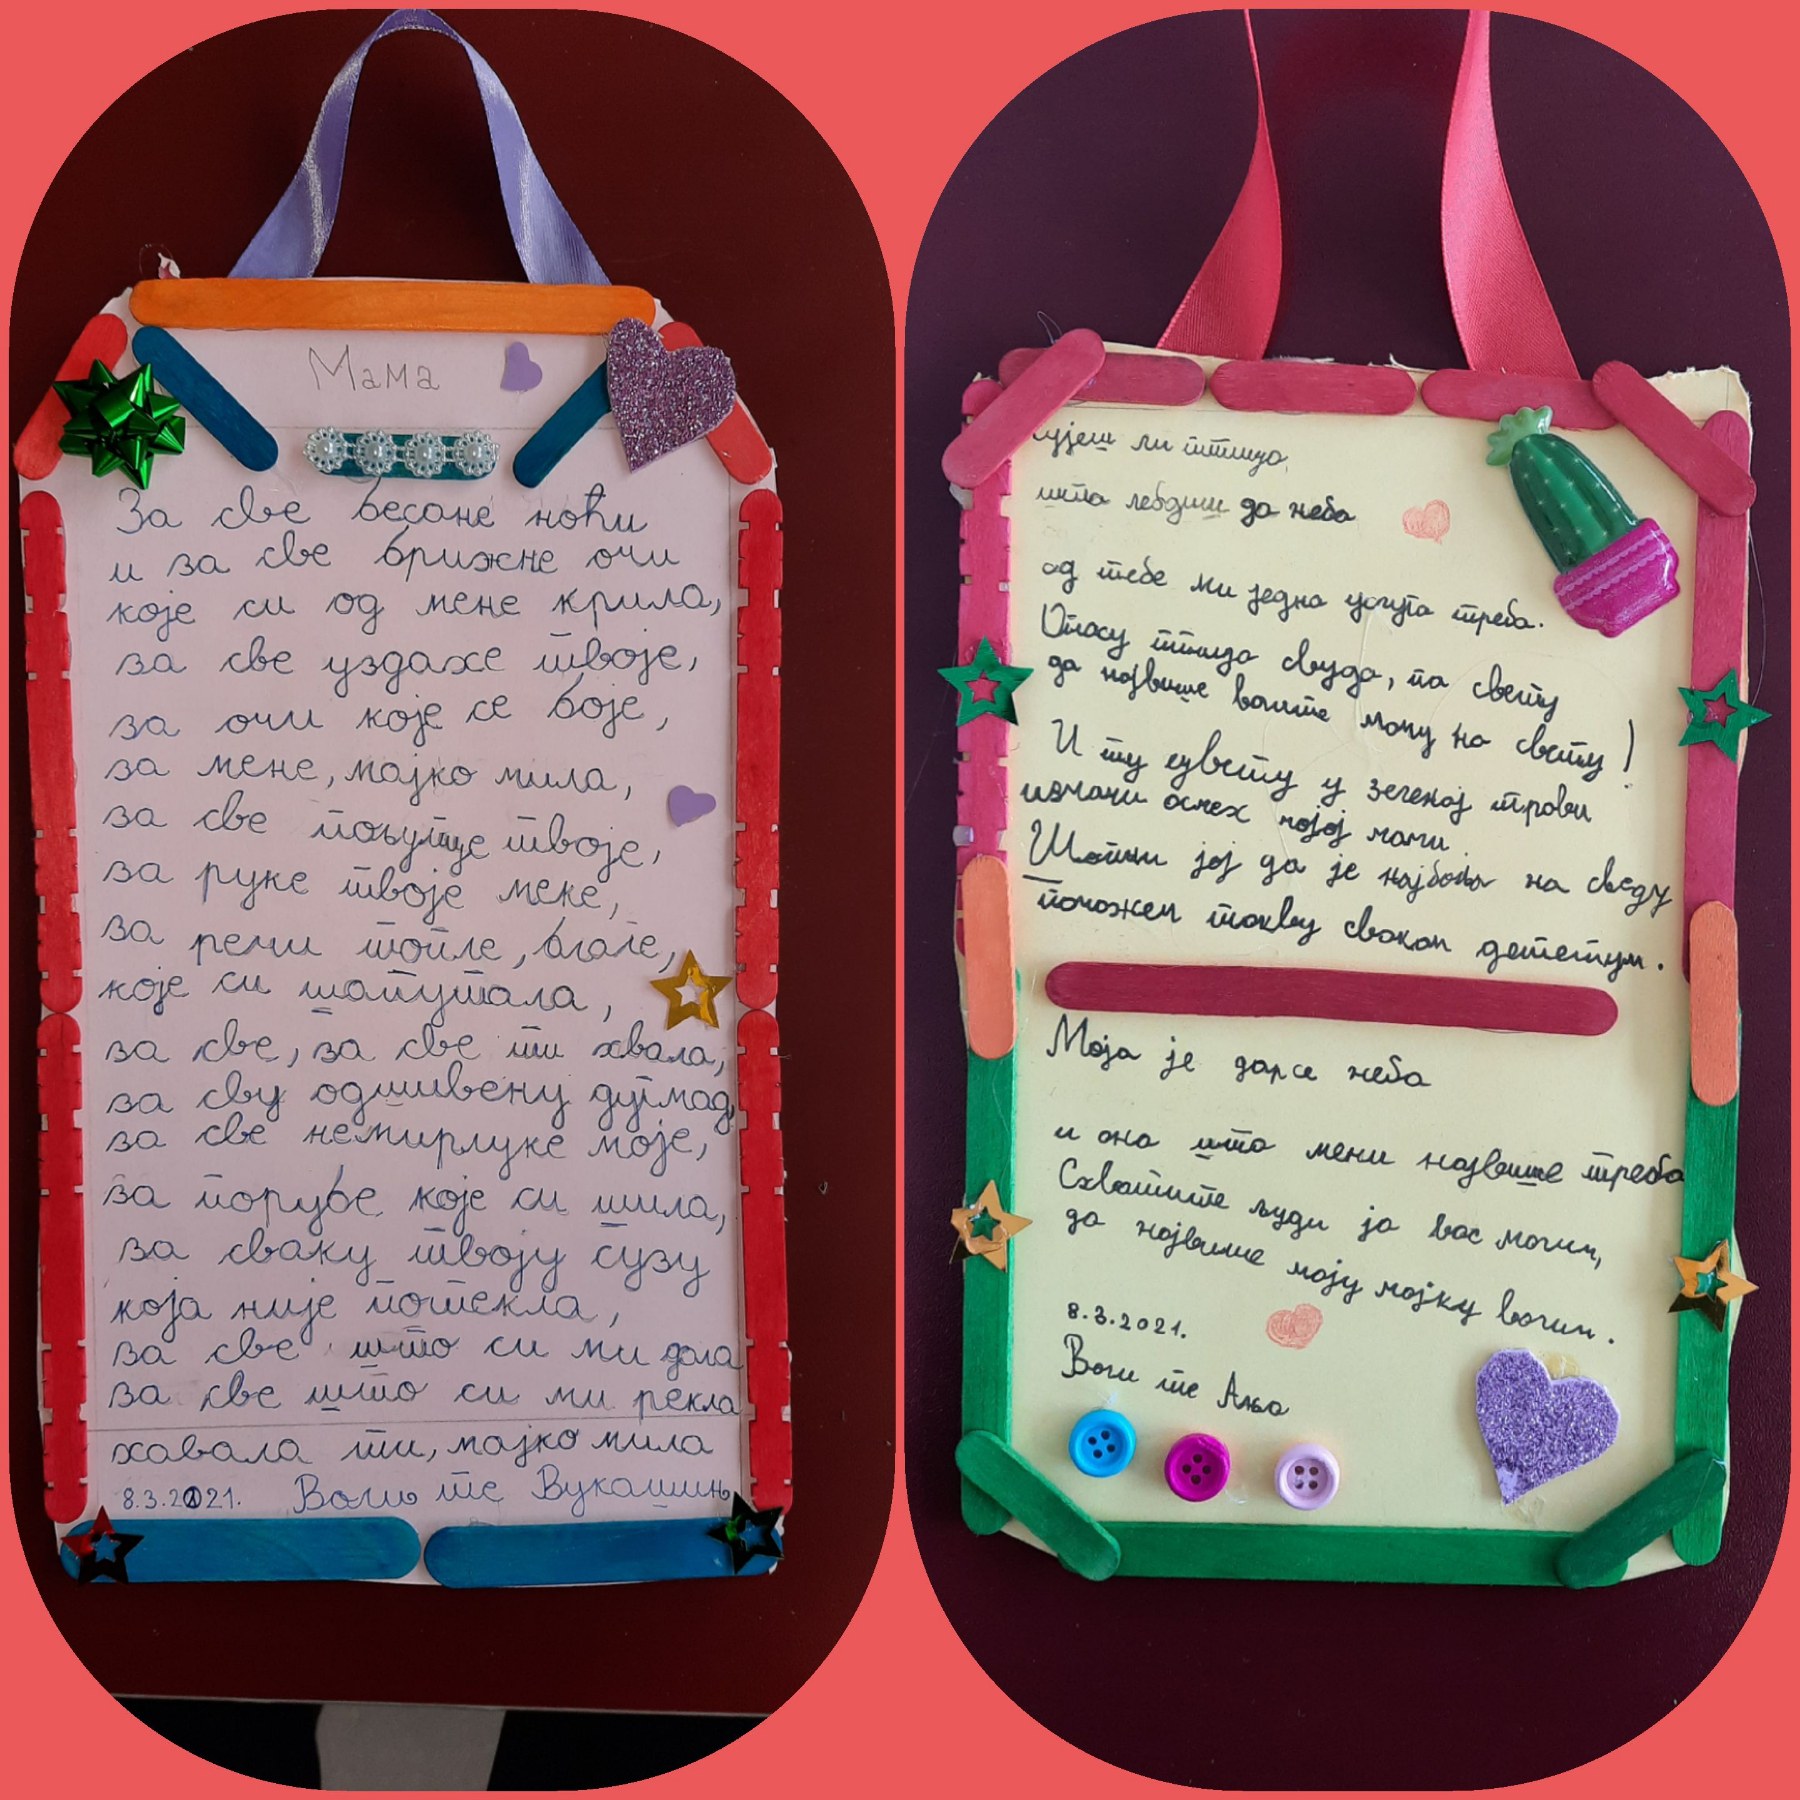 Мама
За све бесане ноћи
и за све брижне очи
које си од мене крила,
за све уздахе твоје,
за очи које се боје,
за мене, мајко мила,
за све пољупце твоје,
за руке твоје меке,
за речи топле, благе,
које си шапутала,
за све, за све ти хвала,
за сву одшивену дугмад,
за све немирлуке моје,
за порубе које си шила,
за сваку твоју сузу
која није потекла,
за све што си ми дала
за све што си ми рекла
хавала ти, мајко мила
8.3.2021. Воли те Вукашин
ли птицо,
што лебдиш до неба
од тебе ми једна услуга треба.
птицо свуда, по свету
да највише волите маму на свету!
И ту цвету у зеленој трави
измами осмех мојој мами.
Шапни јој да је најбоља на сведу
пожежем такву сваком дететум.
Моја је дар се неба
и она што мени највише треба
Схватите људи ја вас молим,
да највише моју мајку волим.
8.3.2021.
Воли те Ања